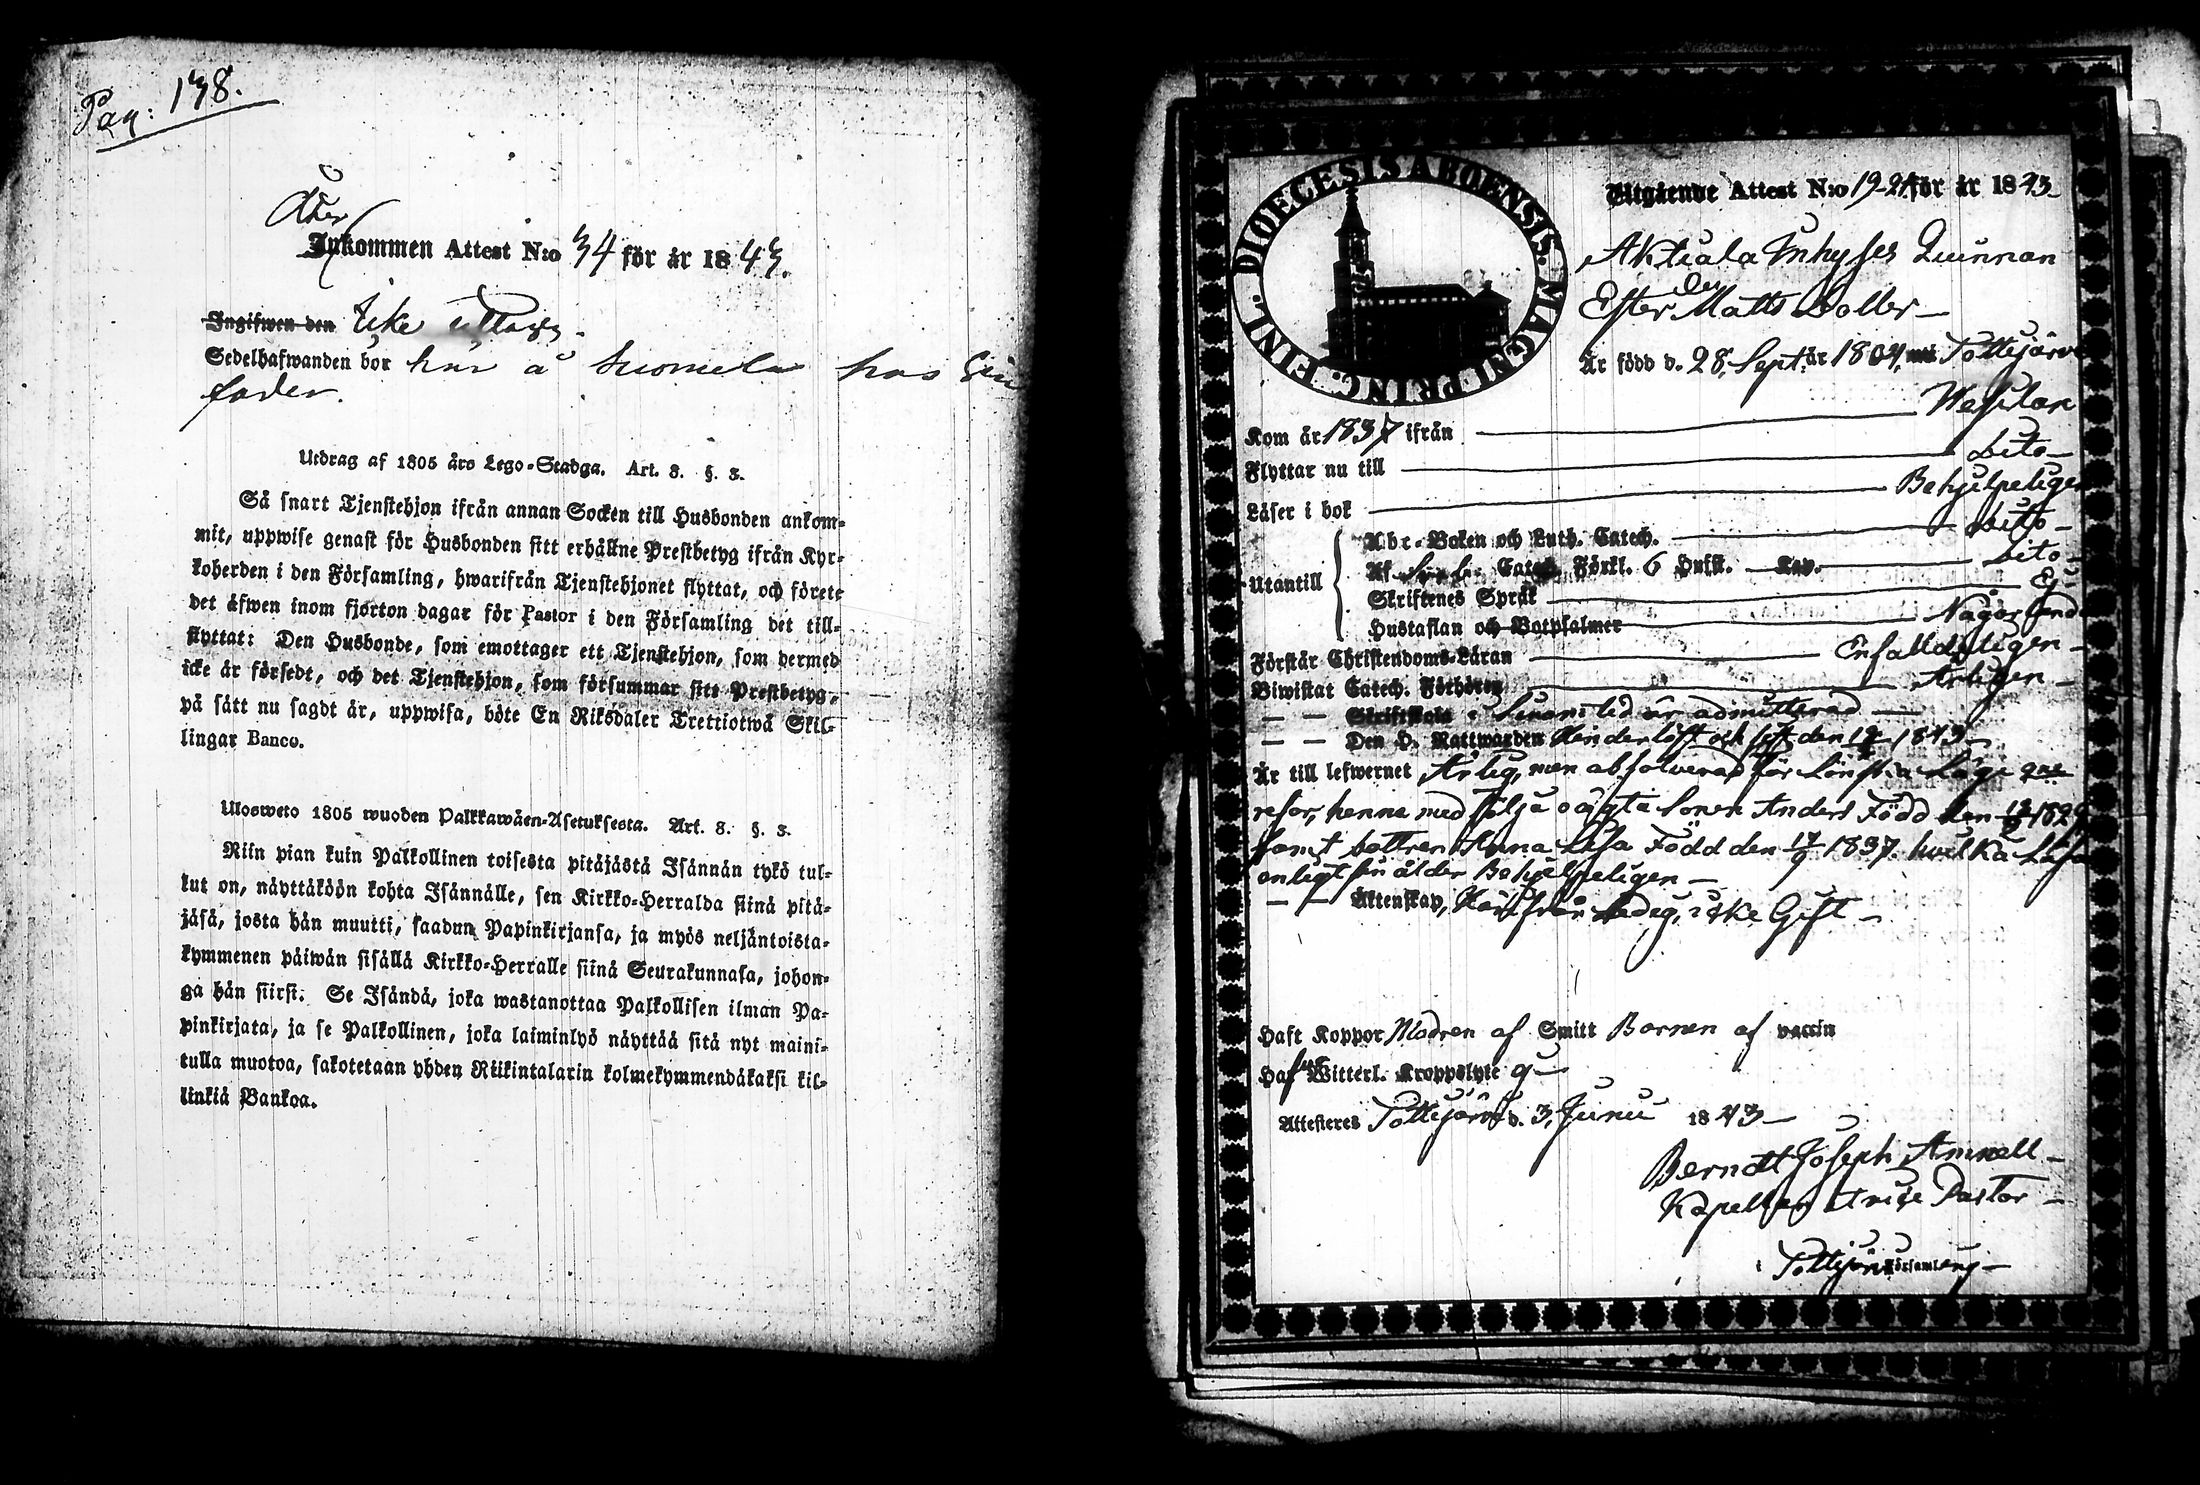 Pag: 138.
Åter
Inkommen Attest N:o 34 för år 1843.
Ingifwen den Icke uttagen.
Sedelhafwanden bor här å Suomela hos Sin
fader.
Utdrag af 1805 års Lego-Stadga. Art. 8. §. 3.
Så snart Tjenstehjon ifrån annan Socken till Husbonden ankom-
mit, uppwise genast för Husbonden sitt erhållne Prestbetyg ifrån Kyr-
koherden i den Församling, hwarifrån Tjenstehjonet flyttat, och förete
det äfwen inom fjorton dagar för Pastor i den Församling det till-
flyttat: Den Husbonde, som emottager ett Tjenstehjon, som dermed
icke är försedt, och det Tjenstehjon, som försummar sitt Prestbetyg,
på sätt nu sagdt är, uppwisa, böte En Riksdaler Trettiotwå Skil-
lingar Banco.
Ulosweto 1805 wuoden Palkkawäen-Asetuksesta. Art. 8. §. 3.
Niin pian kuin Palkollinen toisesta pitäjästä Isännän tykö tul-
lut on, näyttäköön kohta Isännälle, sen Kirkko-Herralda siinä pitä-
jäsä, josta hän muutti, saadun Papinkirjansa, ja myös neljäntoista-
kymmenen päiwän sisällä Kirkko-Herralle siinä Seurakunnasa, johon-
ga hän siirsi. Se Isändä, joka wastanottaa Palkollisen ilman Pa-
pinkirjata, ja se Palkollinen, joka laiminlyö näyttää sitä nyt maini-
tulla muotoa, sakotetaan yhden Riikintalarin kolmekymmendäkaksi kil-
linkiä Bankoa.
DIOECESIS ABOENSIS. MAGNI PRINC. FINL.
Utgående Attest N:o 19-21 för år 1843
Inhyses Quinnan
Matts Dotter
Är född d. 28. Sept. år 1804, Tottijärvi
Kom år 1837 ifrån Wesilax
Flyttar nu till Dito
Läser i bok Behjelpeligen
Utantill
Abc-Boken och Luth. Catech. Dito
Af Catech. Förkl. 6 Hufst. Kap. Dito
Skriftenes Språk Ej
Hustaflan och Botpsalmer Någor lunda
Förstår Christendoms-Läran Enfalldeligen
Biwistat Catech. Förhören Årligen
Skriftskola Sinom tid är admitterad
Den H. Nattwarden Händerlöst och sist den 1843
Är till lefwernet Ärlig, men absolverad för Lönska Läge 2ne
resor, henne medfölja oägta Sonen Anders Född den 1829
samt dottren Anna Lisa Född den 17/9 1837. hvilka Läsa
enligt sin ålder Behjelpeligen
Äktenskap, Härifrån Ledig, icke Gift
Haft Koppor Modren af Smitt Barnen af vaccin
Witterl. Kroppslyte
Attesteres Tottijärvi d. 3. Junii 1843
Berndt Joseph Amnell
Kapellan Vice Pastor
Tottijärvi Församling